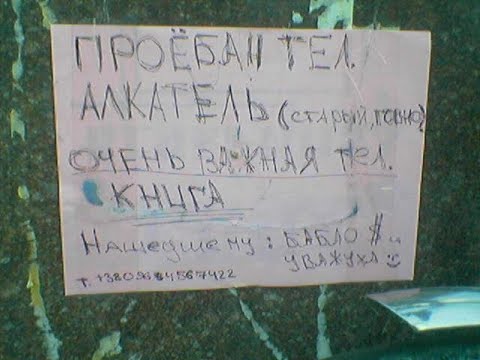 ПРОЁБАН ТЕЛ.
АЛКАТЕЛЬ (СТАРЫЙ, ГОВНО)
ОЧЕНЬ ВАЖНАЯ ТЕЛ.
КНИГА
Нашедшему: БАБЛО $ и
УВАЖУХА